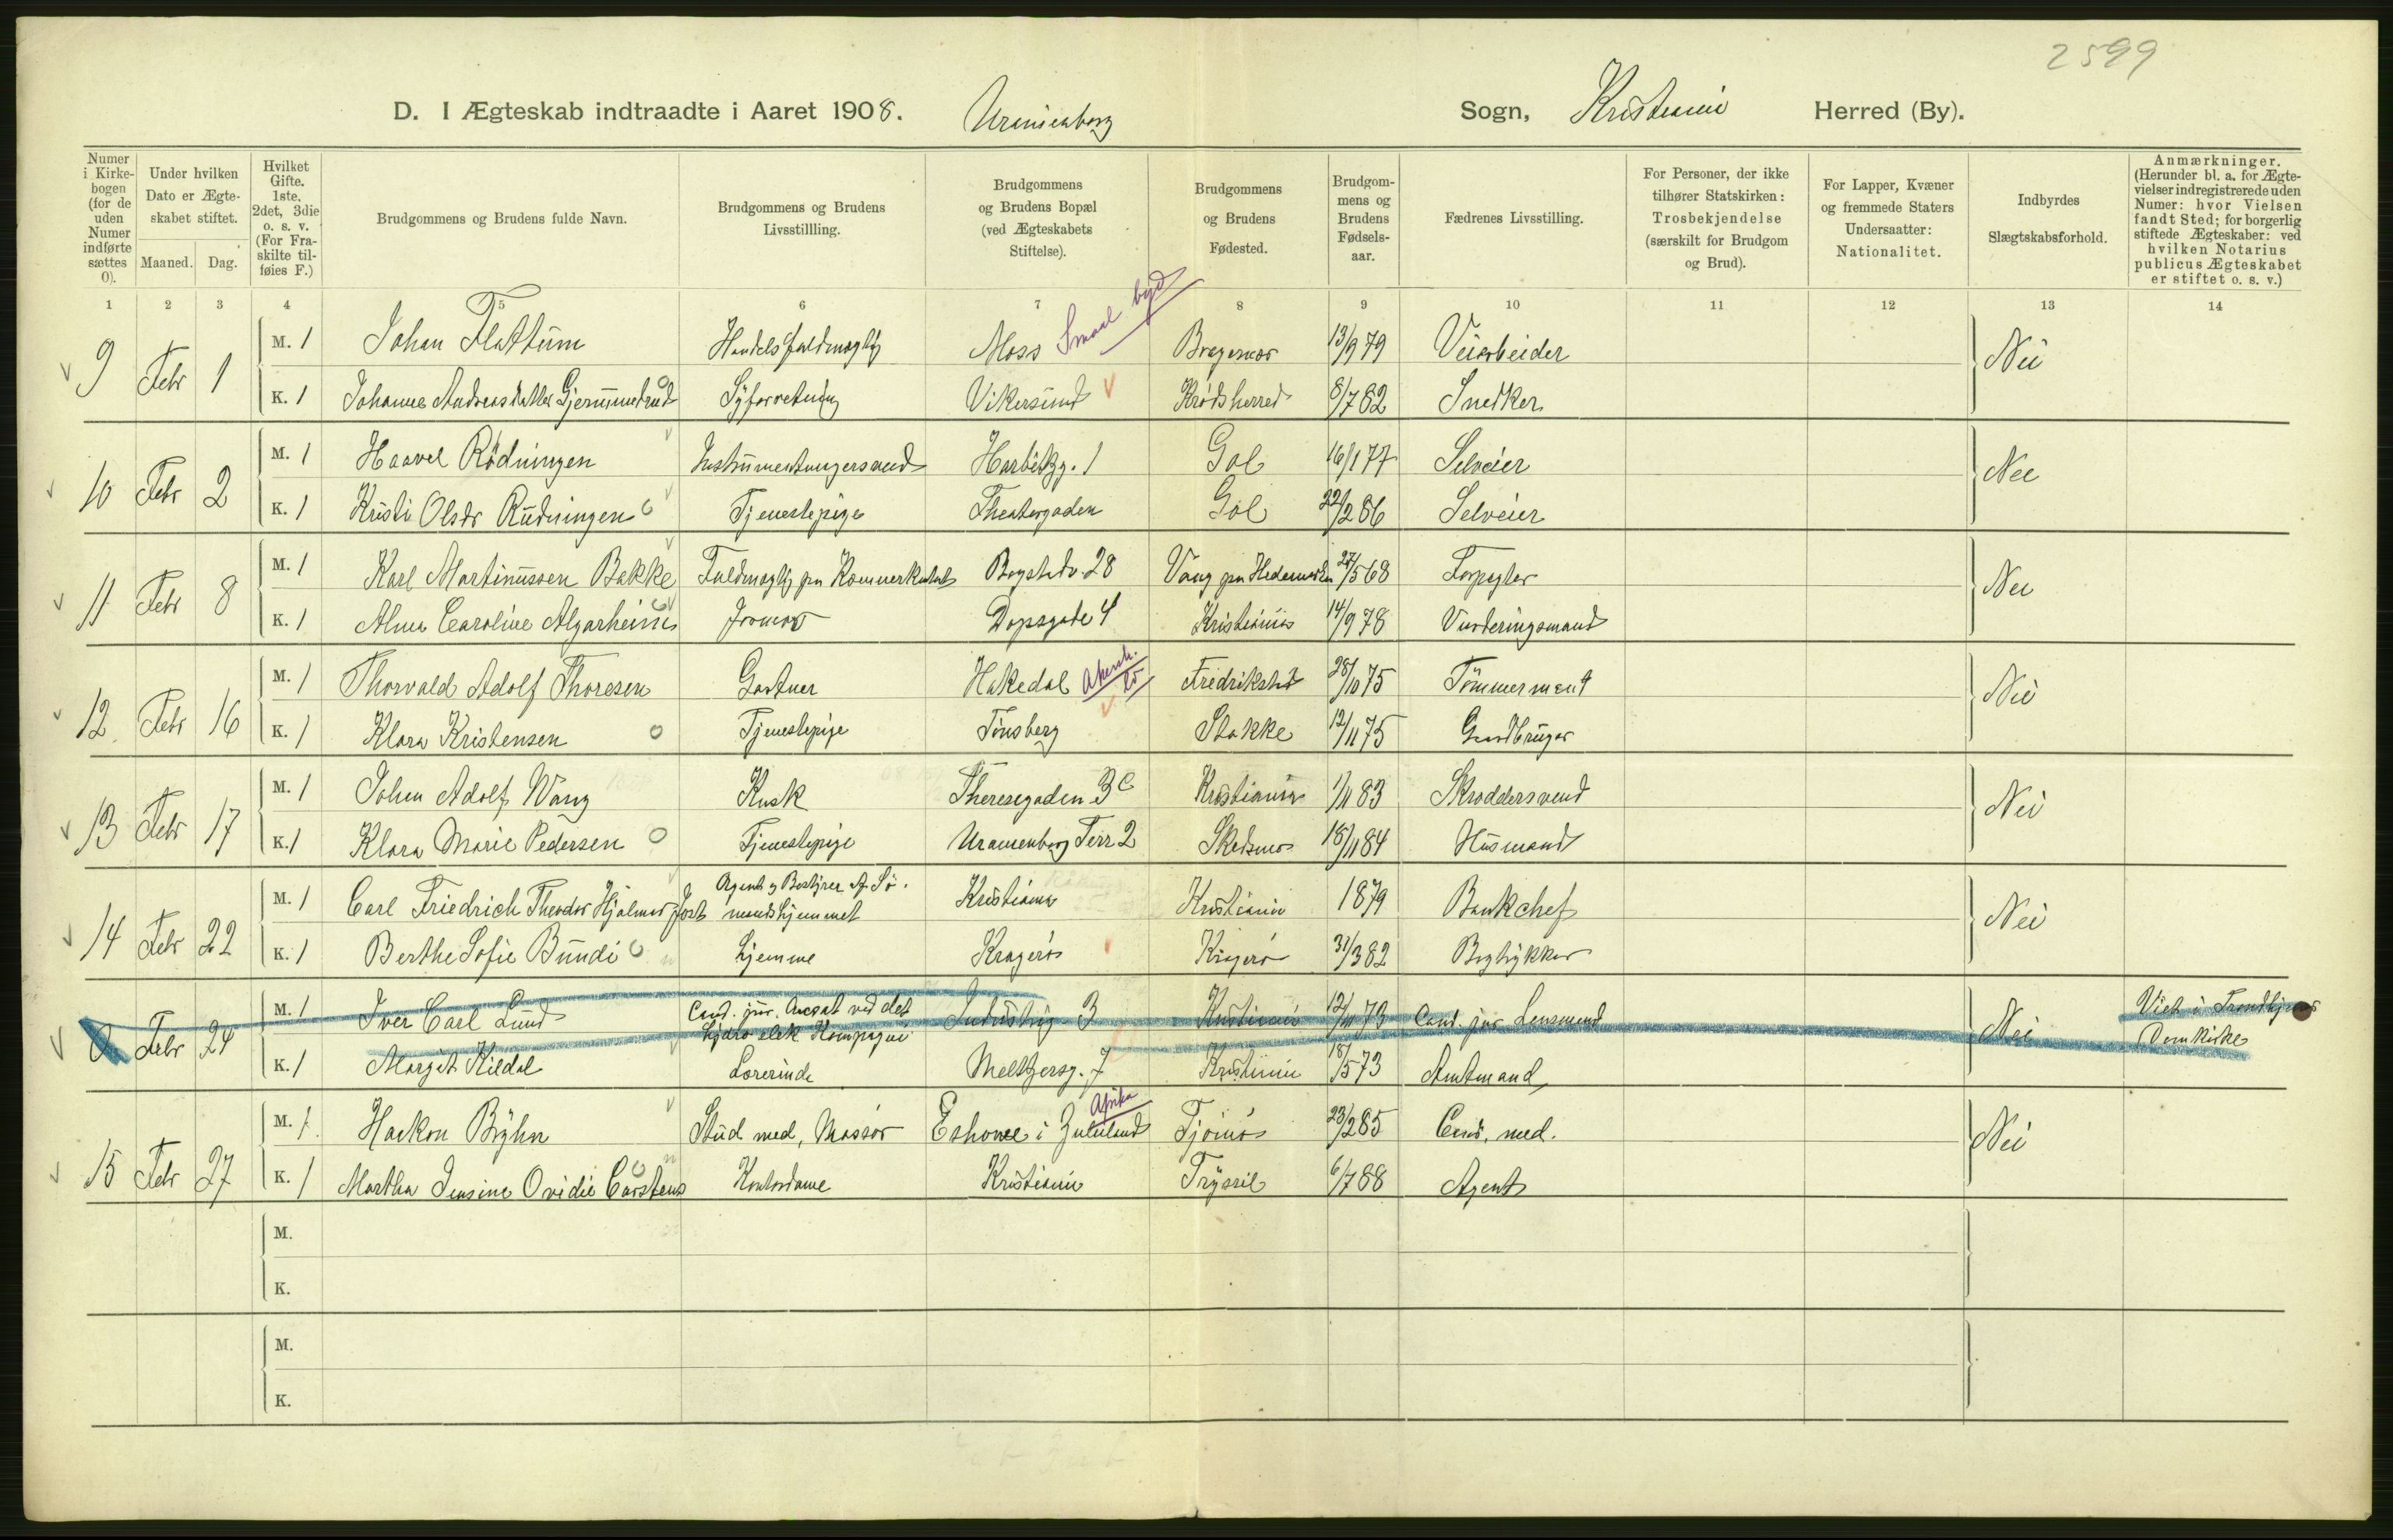 2599
D. I Ægteskab indtraadte i Aaret 1908. Uranienborg Sogn, Kristiania Herred (By).
Numer i Kirkebogen (for de uden Numer indførte sættes 0).
Under hvilken Dato er Ægteskabet stiftet.
Maaned. Dag.
Hvilket Gifte. 1ste. 2det, 3die o. s. v. (For Fraskilte tilføies F.)
Brudgommens og Brudens fulde Navn.
Brudgommens og Brudens Livsstillling.
Brudgommens og Brudens Bopæl (ved Ægteskabets Stiftelse).
Brudgommens og Brudens Fødested.
Brudgommens og Brudens Fødselsaar.
Fædrenes Livsstilling.
For Personer, der ikke tilhører Statskirken: Trosbekjendelse (særskilt for Brudgom og Brud).
For Lapper, Kvæner og fremmede Staters Undersaatter: Nationalitet.
Indbyrdes Slægtskabsforhold.
Anmærkninger. (Herunder bl. a. for Ægtevielser indregistrerede uden Numer: hvor Vielsen fandt Sted; for borgerlig stiftede Ægteskaber: ved hvilken Notarius publicus Ægteskabet er stiftet o. s. v.)
1 2 3 4 5 6 7 8 9 10 11 12 13 14
9 Febr 1 M. 1 Johan Flattum Handelsfuldmægtig Moss Smaal byd Bragernes 13/9 79 Veiarbeider Nei
K. 1 Johanne Andreasdatter Gjermundrud Syforretning Vikersund Krødsherred 8/7 82 Snedker
10 Febr 2 M. 1 Haavel Rödningen Instrumentmagersvend Harbitzg. 1 Gol 16/1 77 Selveier Nei
K. 1 Kristi Olsdr Rudningen Tjenestepige Theatergaden Gol 22/2 86 Selveier
11 Febr 8 M. 1 Karl Martinussen Bakke Fuldmægtig paa Bogstadv. 28 Vang paa Hedemarken 27/5 68 Forpagter Nei
K. 1 Alma Caroline Algarheim Jromor Dopsgade 4 Kristiania 14/9 78 Vurderingsmand
12 Febr 16 M. 1 Thorvald Adolf Thoresen Gartner Hakedal Akersh. Fredrikstad 28/10 75 Tömmermand Nei
K. 1 Klara Kristensen Tjenestepige Tönsberg Stokke 12/11 75 Gaardbruger
13 Febr 17 M. 1 Johan Adolf Wang Kusk Theresegaden 3 c Kristiania 1/11 83 Skræddersvend Nei
K. 1 Klara Marie Pedersen Tjenestepige Uranienborg Terr 2 Skedsmo 18/11 84 Husmand
14 Febr 22 M. 1 Carl Friedrich Theodor Hjalmar Jost Agent og Bestyrer af Sömandshjemmet Kristiania Kristiania 1879 Bankchef Nei
K. 1 Berthe Sofie Bundi hjemme Kragerö Kragerö 31/3 82 Bogtrykker
0 Febr 24 M. 1 Iver Carl Lund Cand. jur. Ansat ved det hydro elek Kompagni Industrig 3 Kristiania 12/11 73 Cand. jur Lensmand Nei Viet i Trondhjems Domkirke
K. 1 Margit Kildal Lærerinde Meltzersg. 7 Kristiania 18/5 73 Amtmand
15 Febr 27 M. 1 Haakon Bryhn Stud med, Massør Eshowe i Zululand Afrika Tjömö 23/2 85 Cand. med. Nei
K. 1 Martha Jensine Ovidie Carstens Kontordame Kristiania Trysil 6/7 88 Agent
M.
K.
M.
K.